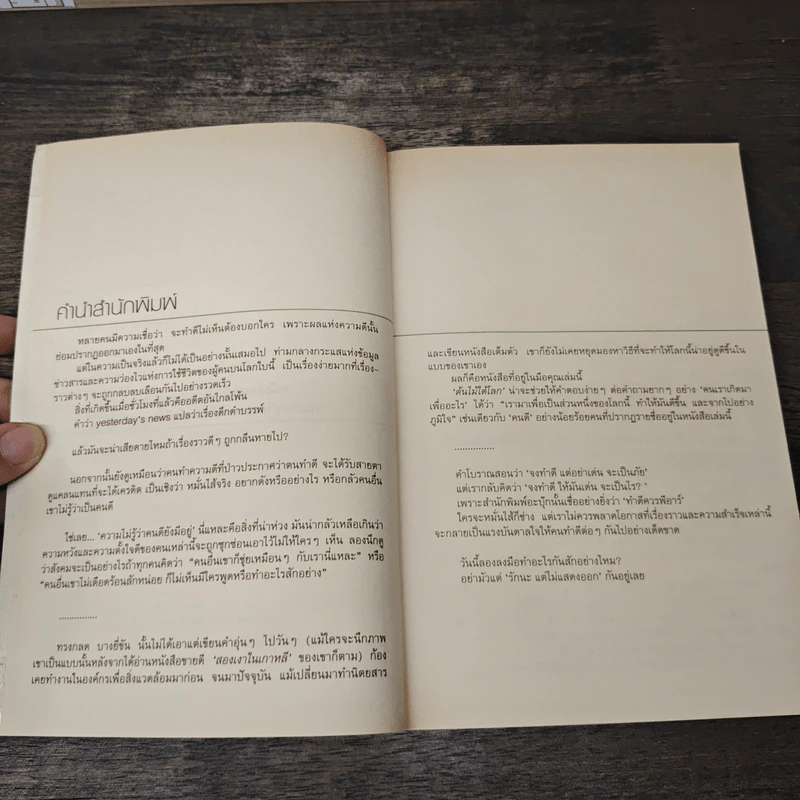 คำนำสำนักพิมพ์
หลายคนมีความเชื่อว่า จะทำดีไม่เห็นต้องบอกใคร เพราะผลแห่งความดีนั้น
ย่อมปรากฏออกมาเองในที่สุด
แต่ในความเป็นจริงแล้วก็ไม่ได้เป็นอย่างนั้นเสมอไป ท่ามกลางกระแสแห่งข้อมูล
ข่าวสารและความว่องไวแห่งการใช้ชีวิตของผู้คนบนโลกใบนี้ เป็นเรื่องง่ายมากที่เรื่อง-
ราวต่างๆ จะถูกกลบลบเลือนกันไปอย่างรวดเร็ว
สิ่งที่เกิดขึ้นเมื่อชั่วโมงที่แล้วคืออดีตอันไกลโพ้น
คำว่า yesterday's news แปลว่าเรื่องดึกดำบรรพ์
แล้วมันจะน่าเสียดายไหมถ้าเรื่องราวดีๆ ถูกกลืนหายไป?
นอกจากนั้นยังดูเหมือนว่าคนทำความดีที่ป่าวประกาศว่าตนทำดี จะได้รับสายตา
ดูแคลนแทนที่จะได้เครดิต เป็นเชิงว่า หมั่นไส้จริง อยากดังหรืออย่างไร หรือกลัวคนอื่น
เขาไม่รู้ว่าเป็นคนดี
ใช่เลย... 'ความไม่รู้ว่าคนดียังมีอยู่' นี่แหละคือสิ่งที่น่าห่วง มันน่ากลัวเหลือเกินว่า
ความหวังและความตั้งใจดีของคนเหล่านี้จะถูกซุกซ่อนเอาไว้ไม่ให้ใครๆ เห็น ลองนึกดู
ว่าสังคมจะเป็นอย่างไรถ้าทุกคนคิดว่า "คนอื่นเขาก็ซุ่ยเหมือนๆ กับเรานี่แหละ" หรือ
"คนอื่นเขาไม่เดือดร้อนสักหน่อย ก็ไม่เห็นมีใครพูดหรือทำอะไรสักอย่าง"
...............
ทรงกลด บางยี่ขัน นั้นไม่ได้เอาแต่เขียนคำอุ่นๆ ไปวันๆ (แม้ใครจะนึกภาพ
เขาเป็นแบบนั้นหลังจากได้อ่านหนังสือขายดี 'สองเงาในเกาหลี' ของเขาก็ตาม) ก้อง
เคยทำงานในองค์กรเพื่อสิ่งแวดล้อมมาก่อน จนมาปัจจุบัน แม้เปลี่ยนมาทำนิตยสาร
และเขียนหนังสือเต็มตัว เขาก็ยังไม่เคยหยุดมองหาวิธีที่จะทำให้โลกนี้น่าอยู่ดีขึ้นใน
แบบของเขาเอง
ผลก็คือหนังสือที่อยู่ในมือคุณเล่มนี้
'ต้นไม้ใต้โลก' น่าจะช่วยให้คำตอบง่ายๆ ต่อคำถามยากๆ อย่าง 'คนเราเกิดมา
เพื่ออะไร' ได้ว่า "เรามาเพื่อเป็นส่วนหนึ่งของโลกนี้ ทำให้มันดีขึ้น และจากไปอย่าง
ภูมิใจ" เช่นเดียวกับ 'คนดี' อย่างน้อยร้อยคนที่ปรากฏรายชื่ออยู่ในหนังสือเล่มนี้
...............
คำโบราณสอนว่า 'จงทำดี แต่อย่าเด่น จะเป็นภัย'
แต่เรากลับคิดว่า 'จงทำดี ให้มันเด่น จะเป็นไร? '
เพราะสำนักพิมพ์อะบุ๊กนั้นเชื่ออย่างยิ่งว่า 'ทำดีควรพีอาร์'
ใครจะหมั่นไส้ก็ช่าง แต่เราไม่ควรพลาดโอกาสที่เรื่องราวและความสำเร็จเหล่านี้
จะกลายเป็นแรงบันดาลใจให้คนทำดีต่อๆ กันไปอย่างเด็ดขาด
วันนี้ลองลงมือทำอะไรกันสักอย่างไหม?
อย่ามัวแต่ 'รักนะ แต่ไม่แสดงออก' กันอยู่เลย